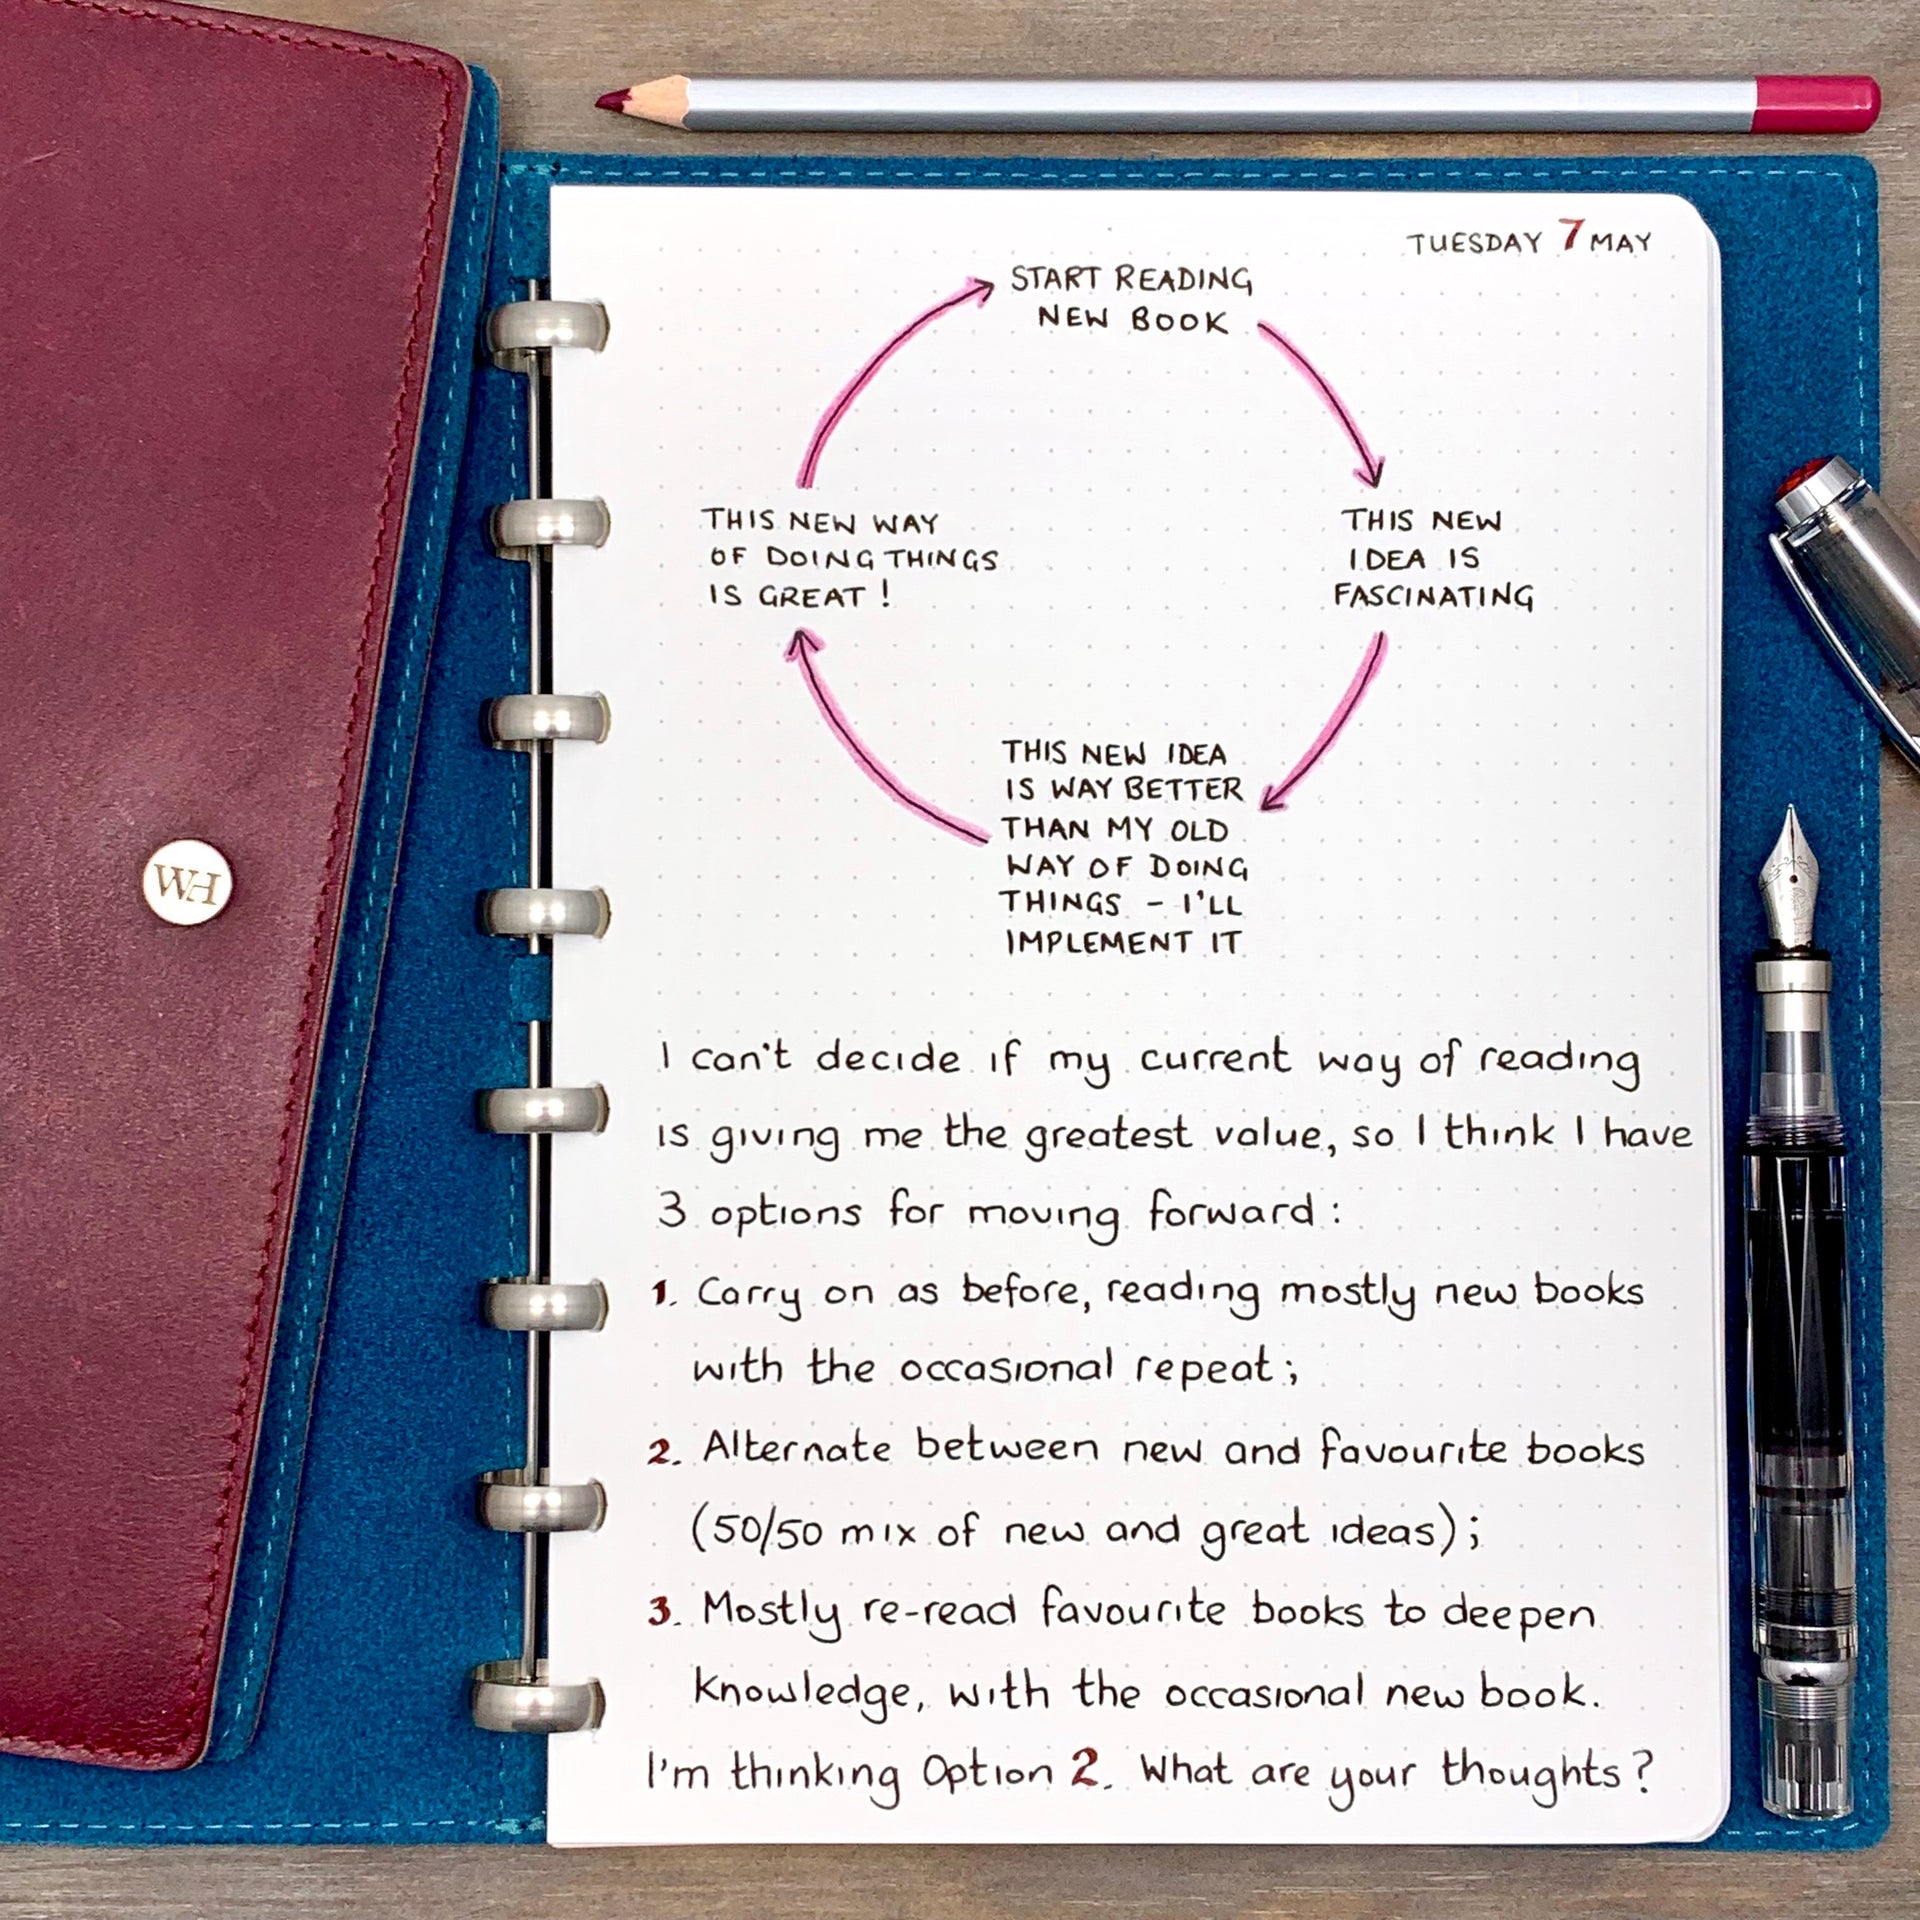 TUESDAY 7 MAY
START READING
NEW BOOK
THIS NEW
IDEA IS
FASCINATING
THIS NEW IDEA
IS WAY BETTER
THAN MY OLD
WAY OF DOING
THINGS - I'LL
IMPLEMENT IT
THIS NEW WAY
OF DOING THINGS
IS GREAT!
I can't decide if my current way of reading
is giving me the greatest value, so I think I have
3 options for moving forward:
1. Carry on as before, reading mostly new books
with the occasional repeat;
2. Alternate between new and favourite books
(50/50 mix of new and great ideas);
3. Mostly re-read favourite books to deepen
knowledge, with the occasional new book.
I'm thinking Option 2. What are your thoughts?
WH